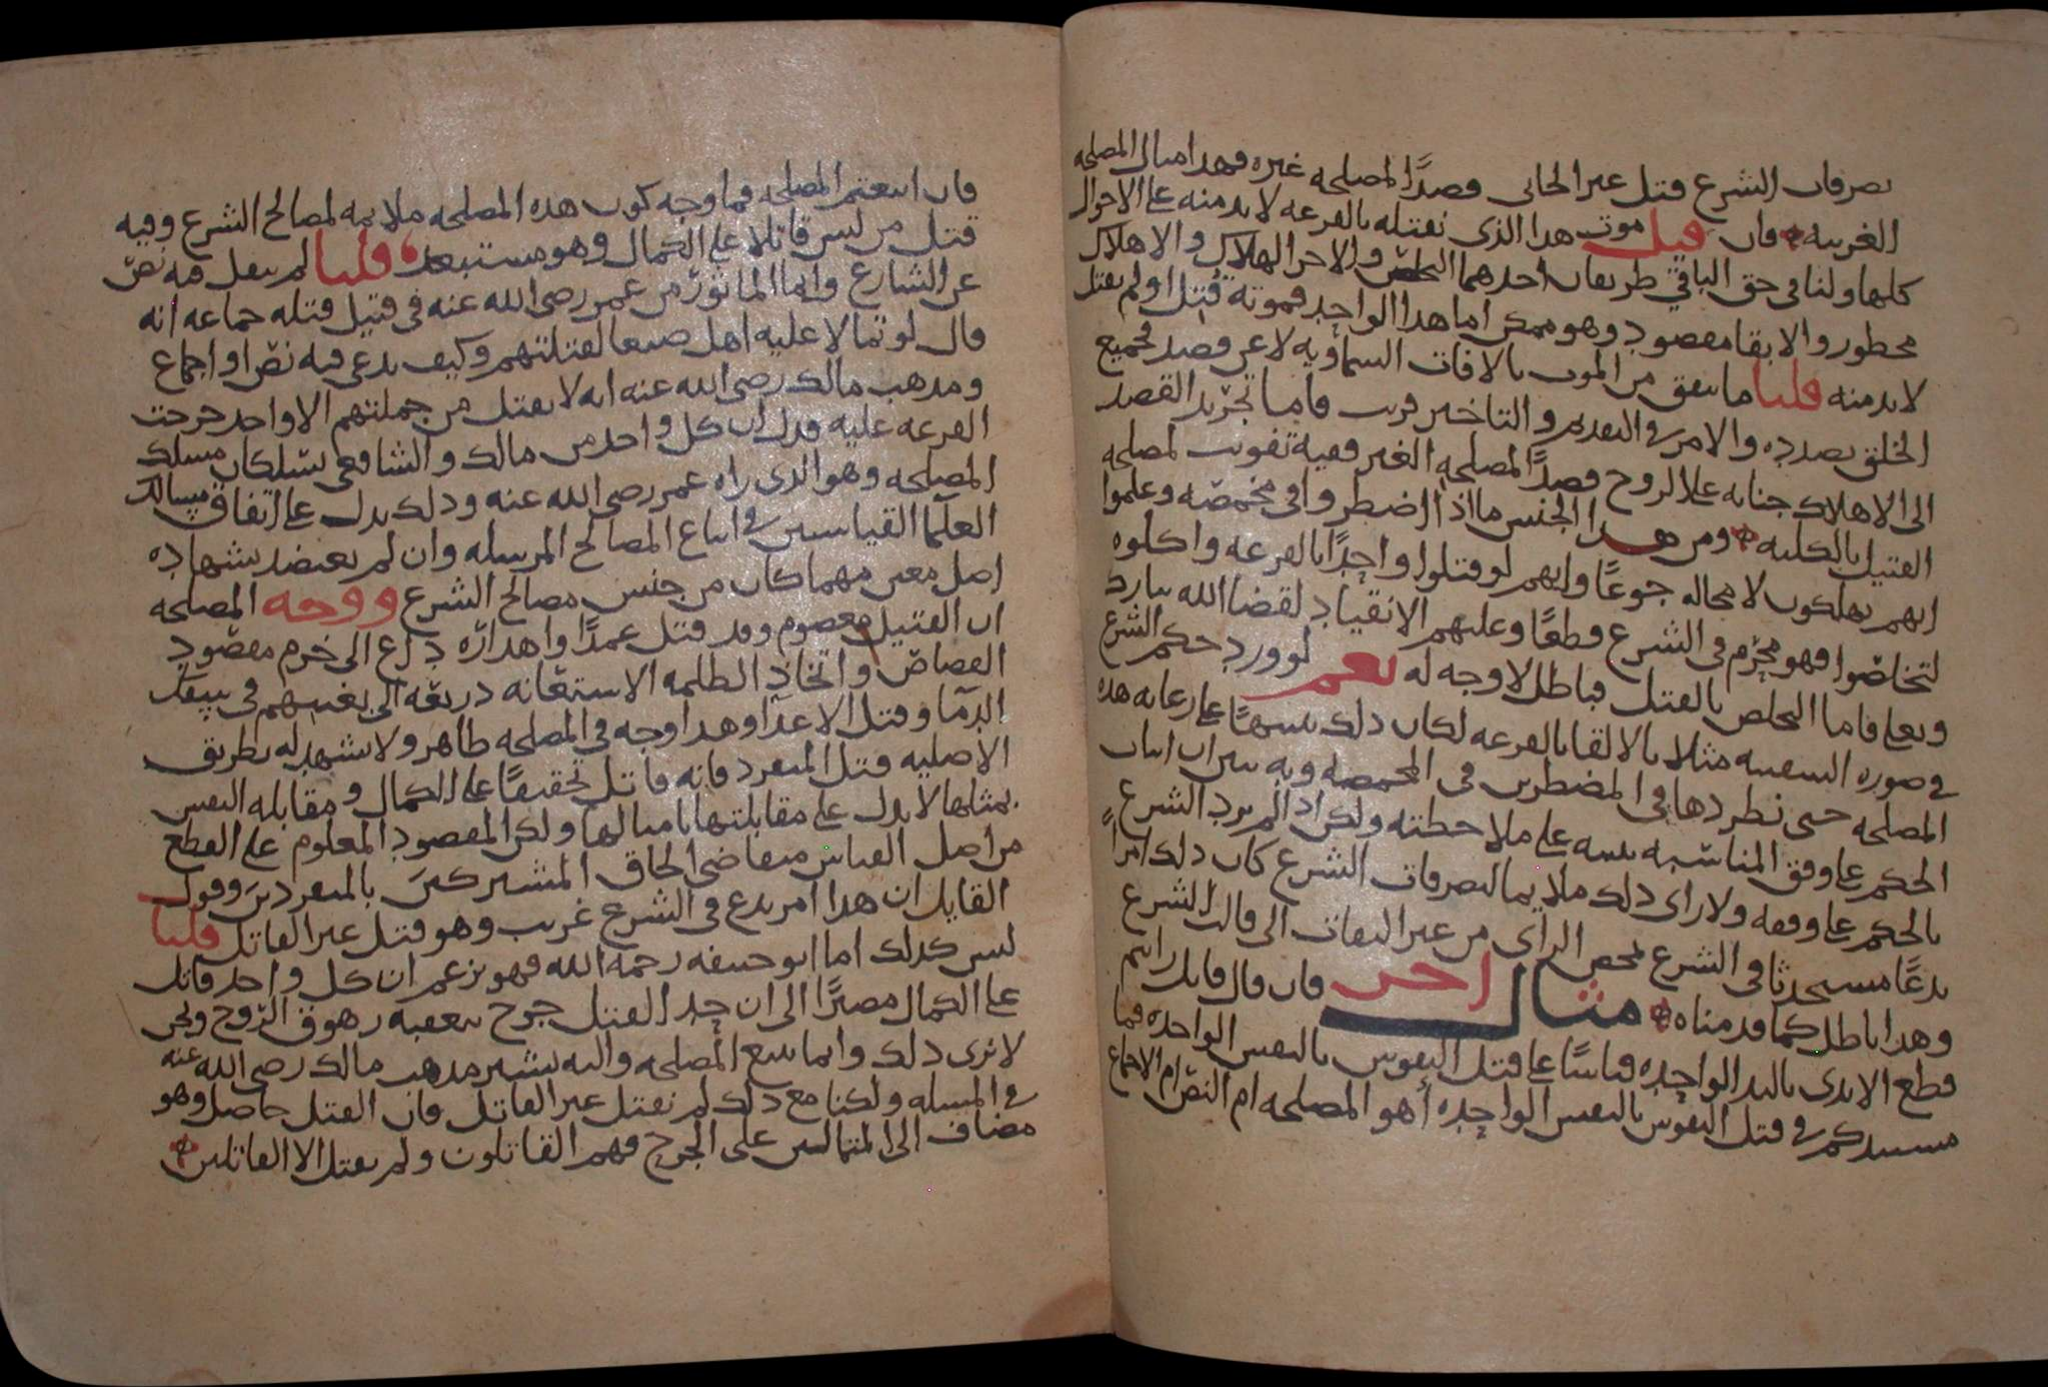 تصرفات الشرع قتل غير الجانى قصدًا لمصلحه غيره فهذا مثال المصلحه
الغريبه فان قيل موت هذا الذى نقتله بالقرعه لابد منه على الاحوال
كلها ولنا فى حق الباقي طريقان احدهما التخليص والاخر الهلاك والاهلاك
محظور والابقا مقصود وهو ممكن اما هذا الواحد فموته قُتل او لم يقتل
لابد منه قلنا ما يتفق من الموت بالافات السماويه لا عن قصد فجميع
الخلق بصدده والامر فى التقديم والتاخير قريب فاما تجريد القصد
الى الاهلاك جنايه على الروح قصدًا لمصلحه الغير ففيه تفويت لمصلحه
القتيل بالكليه ومن هذا الجنس ما اذا اضطروا فى مخمصه وعلموا
انهم يهلكون لا محاله جوعًا وانهم لو قتلوا واحدًا بالقرعه واكلوه
لتخلصوا فهو محرم فى الشرع قطعًا وعليهم الانقياد لقضا الله تبارك
وتعلى فاما التخلص بالقتل فباطل لا وجه له نعم لو ورد حكم الشرع
فى صوره السفينه مثلا بالالقا بالقرعه لكان ذلك تنبيهًا على رعايه هذه
المصلحه حتى نطردها فى المضطرين فى المخمصه وبه تبين ان اثبات
الحكم على وفق المناسبه تنبيه على ملاحظته ولكن اذا لم يرد الشرع
بالحكم على وفقه ولا راى ذلك ملايما لتصرفات الشرع كان ذلك امرًا
بدعًا مستحدثا فى الشرع لمحض الراى من غير التفات الى قالب الشرع
وهذا باطل كما قدمناه مثال اخر فان قال قايل رايتم
قطع الايدى باليد الواحده قياسًا على قتل النفوس بالنفس الواحده فما
مستندكم فى قتل النفوس بالنفس الواحده أهو المصلحه ام النص ام الاجماع
فان اتبعتم المصلحه فما وجه كون هذه المصلحه ملايمه لمصالح الشرع وفيه
قتل من ليس قاتلا على الكمال وهو مستبعد قلنا لم ينقل فيه نصّ
عن الشارع وانما الماثور من عمر رضى الله عنه فى قتيل قتله جماعه انه
قال لو تمالا عليه اهل صنعا لقتلتهم وكيف يدعى فيه نص او اجماع
ومذهب مالك رضى الله عنه انه لا يقتل من جملتهم الا واحد خرجت
القرعه عليه فدل ان كل واحد من مالك والشافعى يسلكان مسلك
المصلحه وهو الذى راه عمر رضى الله عنه وذلك يدل على اتفاق مسالك
العلما القياسين فى اتباع المصالح المرسله وان لم يعتضد بشهاده
اصل معين مهما كان من جنس مصالح الشرع ووجه المصلحه
ان القتيل معصوم وقد قتل عمدًا واهداره داع الى خرم مقصود
القصاص واتخاذ الظلمه الاستعانه ذريعه الى بغيتهم فى سفك
الدما وقتل الاعدا وهذا وجه فى المصلحه ظاهر ولا يشهد له بطريق
الاصليه قتل المنفرد فانه قاتل تحقيقًا على الكمال ومقابله النفس
بمثلها لا يدل على مقابلتها بامثالها ولكن المقصود المعلوم على القطع
من اصل القياس متقاضى الحاق المشتركين بالمنفردين وقول
القايل ان هذا امر بدع فى الشرع غريب وهو قتل غير القاتل قلنا
ليس كذلك اما ابو حنيفه رحمه الله فهو يزعم ان كل واحد قاتل
على الكمال مصيرًا الى ان حد القتل جرح يعقبه زهوق الروح ونحن
لا نرى ذلك وانما نتبع المصلحه واليه يشير مذهب مالك رضى الله عنه
فى المسله ولكنا مع ذلك لم نقتل غير القاتل فان القتل حاصل وهو
مضاف الى المتمالين على الجرح فهم القاتلون ولم يقتل الا القاتلين